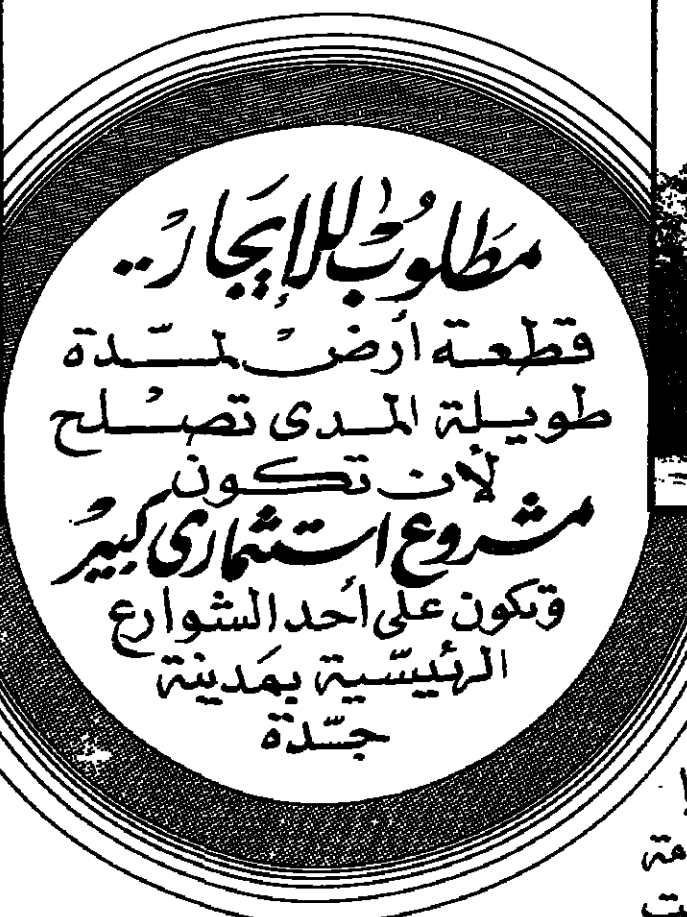 مطلوب للإيجار..
قطعة أرض لمدة
طويلة المدى تصلح
لأن تكون
مشروع استثماري كبير
وتكون على أحد الشوارع
الرئيسية بمدينة
جدة